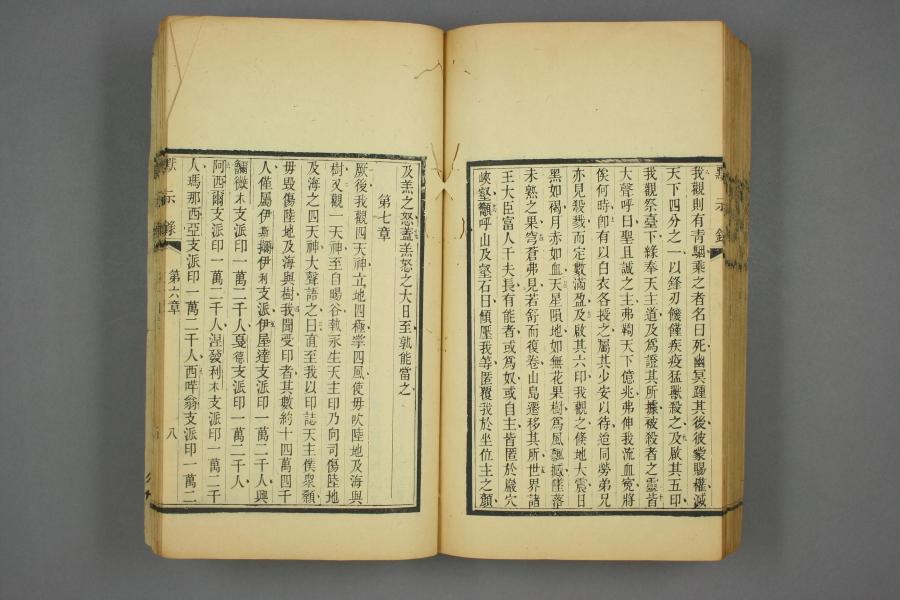 我觀則有青駰乘之者名曰死幽冥踵其後彼蒙賜權滅
天下四分之一以鋒刃饑饉疾疫猛獸殺之及啟其五印
我觀祭臺下緣奉天主道及爲證其所據被殺者之靈皆
大聲呼曰聖且誠之主弗鞫天下億兆弗伸我流血寃將
俟何時卽有以白衣各授之屬其少安以待迨同勞弟兄
亦見殺戮而定數滿盈及啟其六印我觀之倏地大震日
黑如碣月亦如血天星隕地如無花果樹爲風飄撼墜落
未熟之果穹蒼弗見若舒而復卷山島遷移其所世界諸
王大臣富人千夫長有能者或爲奴或自主皆匿於巖穴
峽壑籲呼山及壑石曰傾壓我等匿覆我於坐位主之顏
及羔之怒蓋羔怒之大日至孰能當之
第七章
厥後我觀四天神立地四極掌四風使毋吹陸地及海與
樹又觀一天神至自暘谷執永生天主印乃向司傷陸地
及海之四天神大聲語之曰直至我以印誌天主僕衆額
毋毀傷陸地及海與樹我聞受印者其數約十四萬四千
人僅屬伊斯擱伊利支派伊屋達支派印一萬二千人與
爾微木支派印一萬二千人戛德支派印一萬二千人
阿西爾支派印一萬二千人涅發利木支派印一萬二千
人瑪那西亞支派印一萬二千人西莘翁支派印一萬二
默示錄
第六章
八